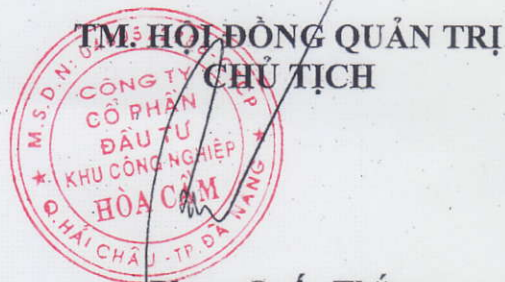 TM. HỘI ĐỒNG QUẢN TRỊ
CHỦ TỊCH
M.S.D.N:
CÔNG TY
CỔ PHẦN
ĐẦU TƯ
KHU CÔNG NGHIỆP
HÒA CẦM
Q. HẢI CHÂU - TP. ĐÀ NẴNG